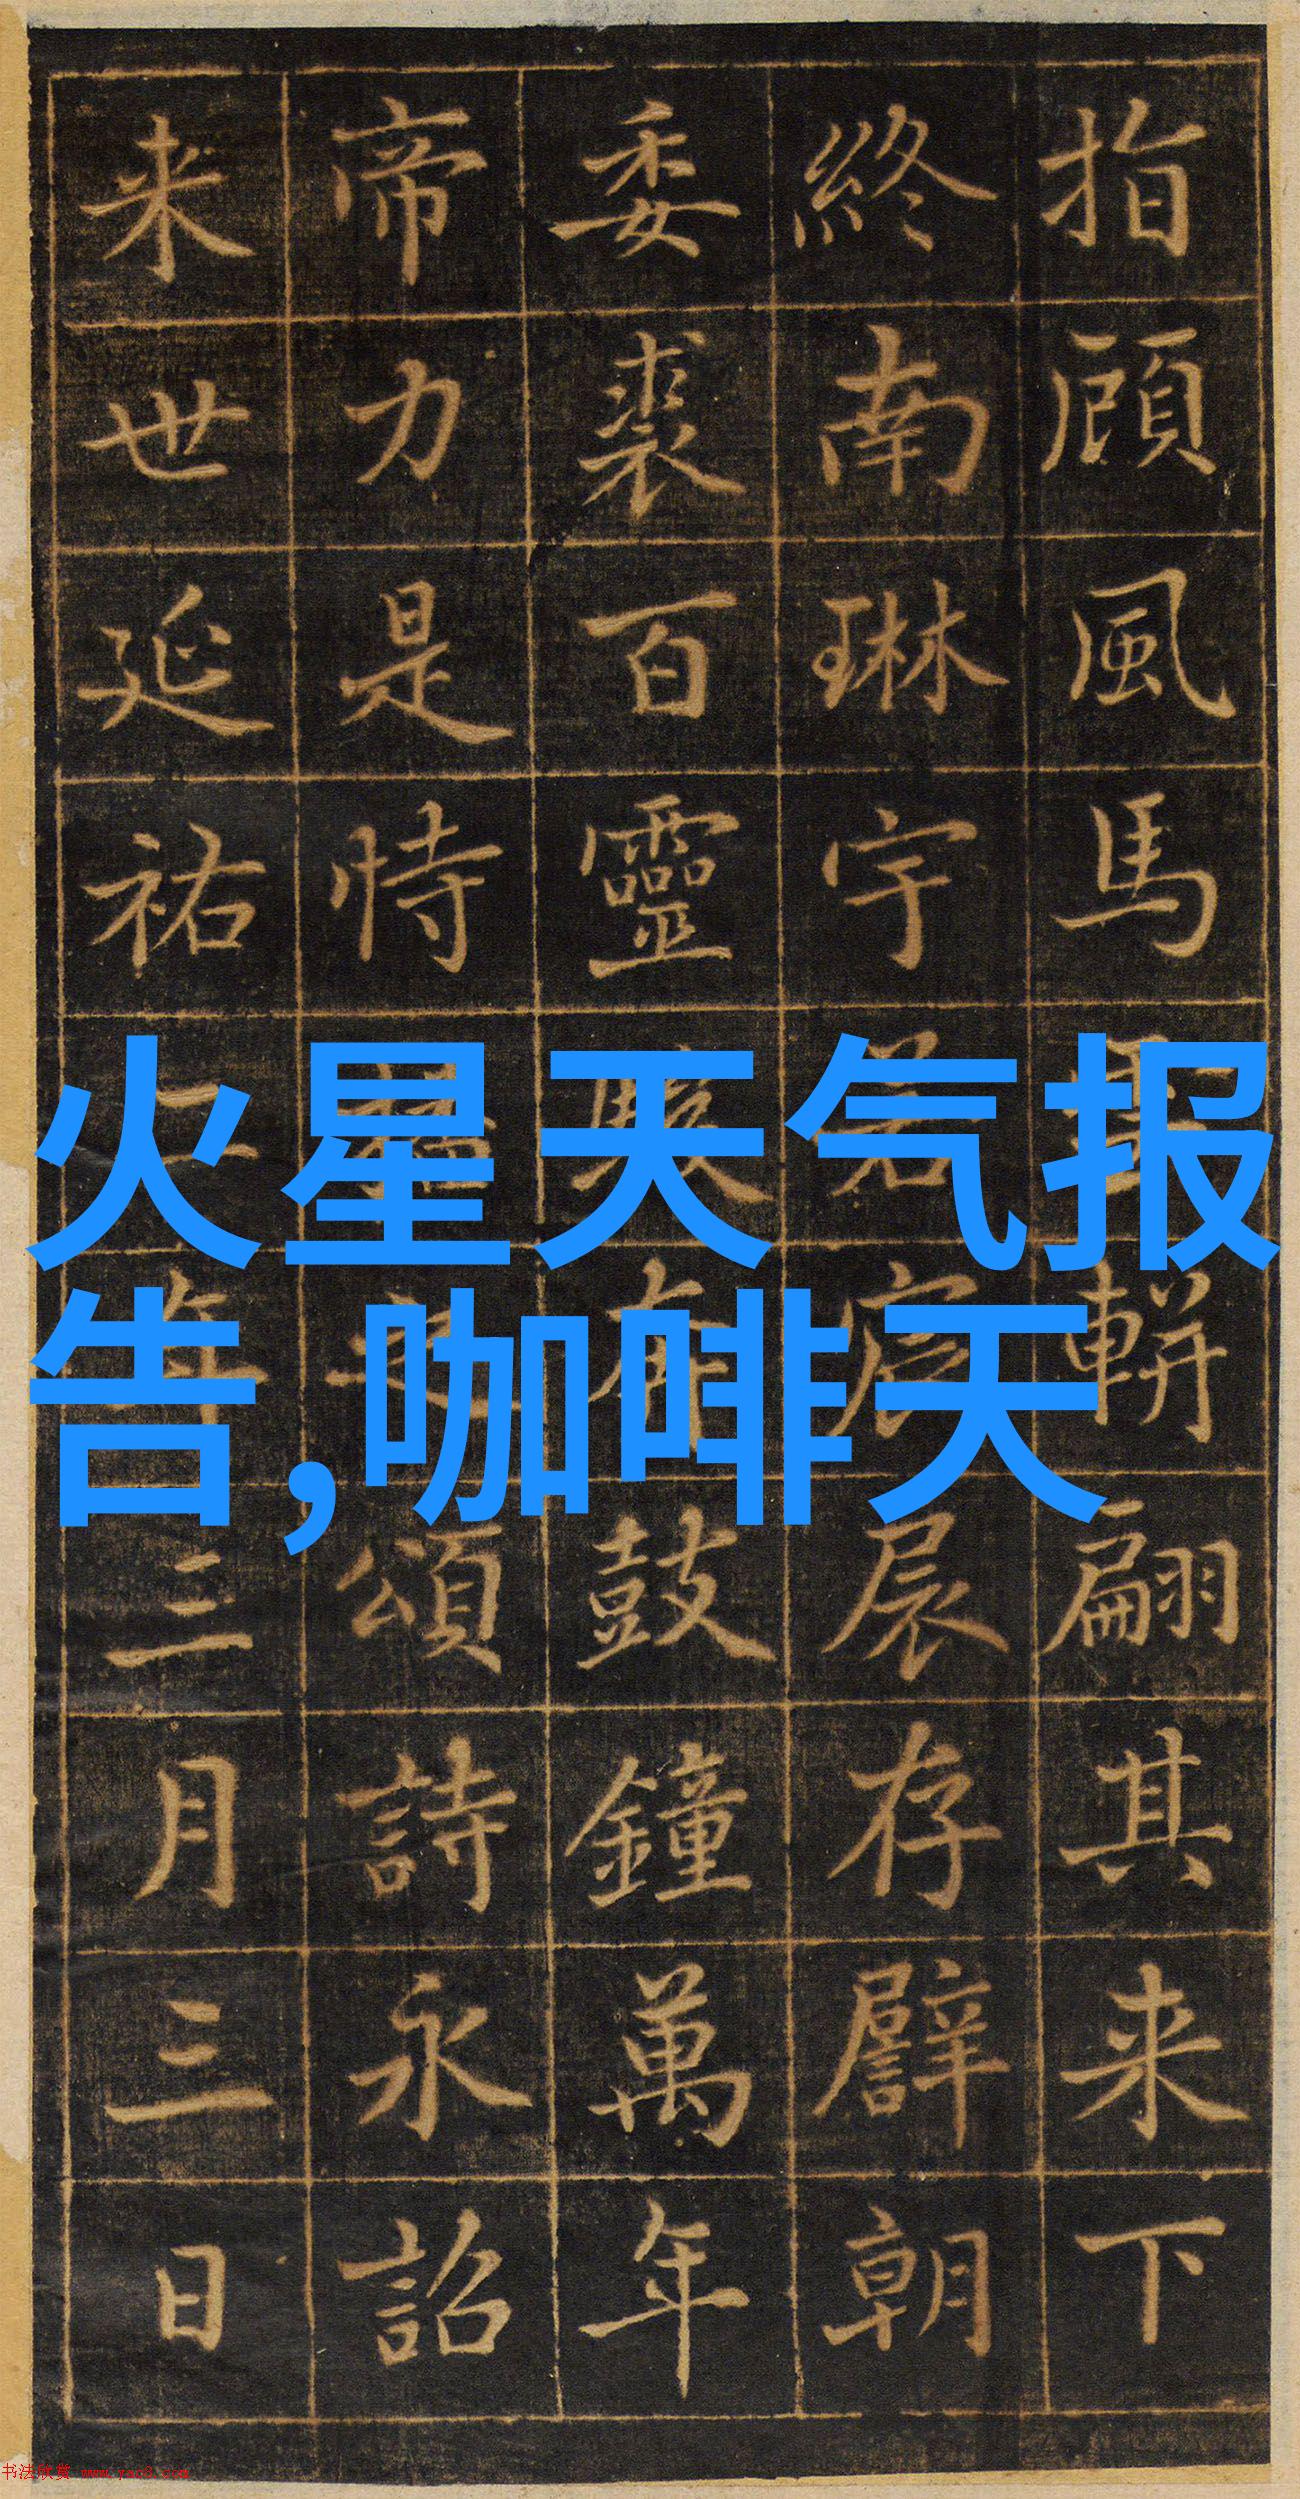 指顧風馬軿翩其来下
終南琳宇若宸扆存譬朝
委裘百靈駿奔鼓鐘萬年
帝力是恃頌詩永詔
来世延祐二年三月三日
火星天气报
告,咖啡天
书法欣赏 www.yac8.com